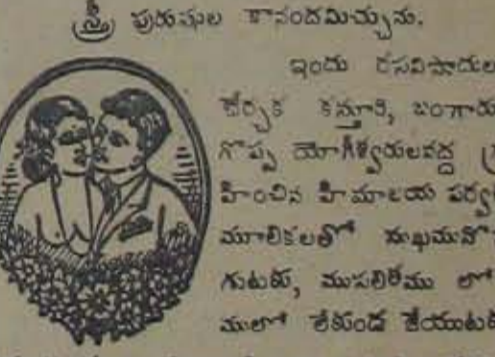 స్త్రీ పురుషుల కానందమిచ్చును.
ఇందు రసవిషాదుల
చేర్చక కస్తూరి, బంగారు
గొప్ప యోగీశ్వరులవద్ద
హించిన హిమాలయ పర్వ
మూలికలతో సుఖమవొ
గుటకు, ముసలితేము లో
ములో లేకుండ జేయుటకు